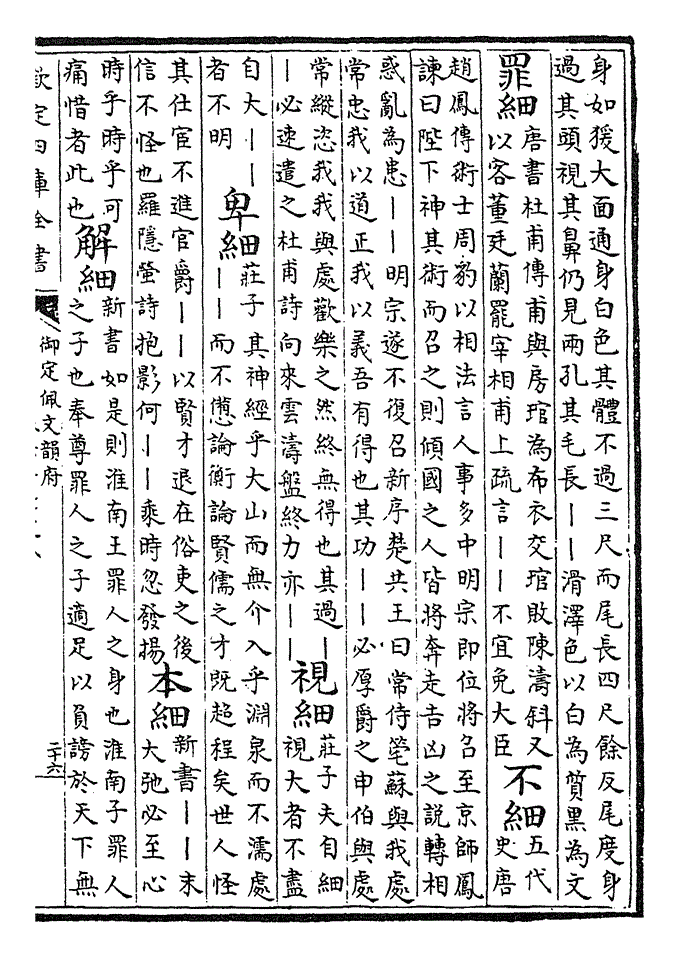 身如猨大面通身白色其體不過三尺而尾長四尺餘反尾度身
過其頭視其鼻仍見兩孔其毛長丨丨滑澤色以白為質黑為文
罪細
唐書杜甫傳甫與房琯為布衣交琯敗陳濤斜又
以客董廷蘭罷宰相甫上疏言丨丨不宜免大臣
不細
五代
史唐
趙鳳傳術士周豹以相法言人事多中明宗即位將召至京師鳳
諫曰陛下神其術而召之則傾國之人皆將奔走吉凶之說轉相
惑亂為患丨丨明宗遂不復召新序楚共王曰常侍筦蘇與我處
常忠我以道正我以義吾有得也其功丨丨必厚爵之申伯與處
常縱恣我我與處歡樂之然終無得也其過丨
丨必速遣之杜甫詩向來雲濤盤終力亦丨丨
視細
莊子夫自細
視大者不盡
自大丨丨
者不明
卑細
莊子其神經乎大山而無介入乎淵泉而不濡處
丨丨而不憊論衡論賢儒之才既超程矣世人怪
其仕宦不進官爵丨丨以賢才退在俗吏之後
信不怪也羅隱螢詩抱影何丨丨乘時忽發揚
本細
新書丨丨末
大弛必至心
時乎時乎可
痛惜者此也
解細
新書如是則淮南王罪人之身也淮南子罪人
之子也奉尊罪人之子適足以負謗於天下無
欽定四庫全書
御定佩文韻府
二十六